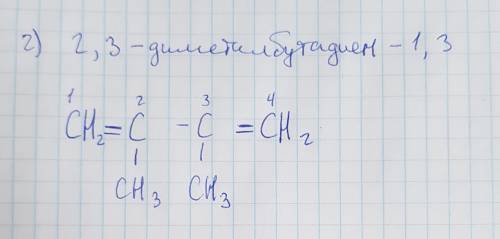 г) 2,3-диметилбутадиен-1,3
1 2 3 4
CH₂=C - C =CH₂
CH₃ CH₃